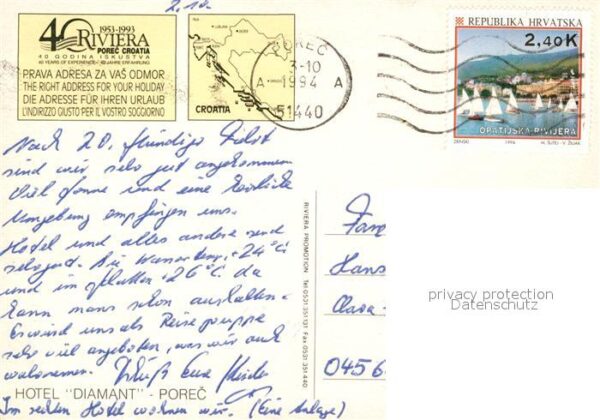 2.10.
1953-1993
40 RIVIERA
POREČ CROATIA
40 GODINA ISKUSTVA
40 YEARS OF EXPERIENCE - 40 JAHRE ERFAHRUNG
PRAVA ADRESA ZA VAŠ ODMOR
THE RIGHT ADDRESS FOR YOUR HOLIDAY
DIE ADRESSE FÜR IHREN URLAUB
L'INDIRIZZO GIUSTO PER IL VOSTRO SOGGIORNO
CROATIA
POREČ
3-10
A 1994 A
51440
REPUBLIKA HRVATSKA
2,40K
OPATIJSKA RIVIJERA
ZRINSKI 1994. M. ŠUTEJ - V. ŽILJAK
Nach 20. stündiger Fahrt
sind wir sehr gut angekommen
Viel Sonne und eine herrliche
Umgebung empfingen uns.
Hotel und alles andere sind
sehr gut. Die Wassertemp. +24°C
und im +26°C. da
kann man schon aushalten.
Es wird uns als Reisegruppe
sehr viel angeboten, was wir auch
wahrnehmen. Grüß Eure
HOTEL "DIAMANT" - POREČ
Im selben Hotel wohnen wir. (Eine Anlage)
RIVIERA PROMOTION Tel 0531 351 131 Fax 0531 351 440
Fam
Hans
Clara-
0456
privacy protection
Datenschutz